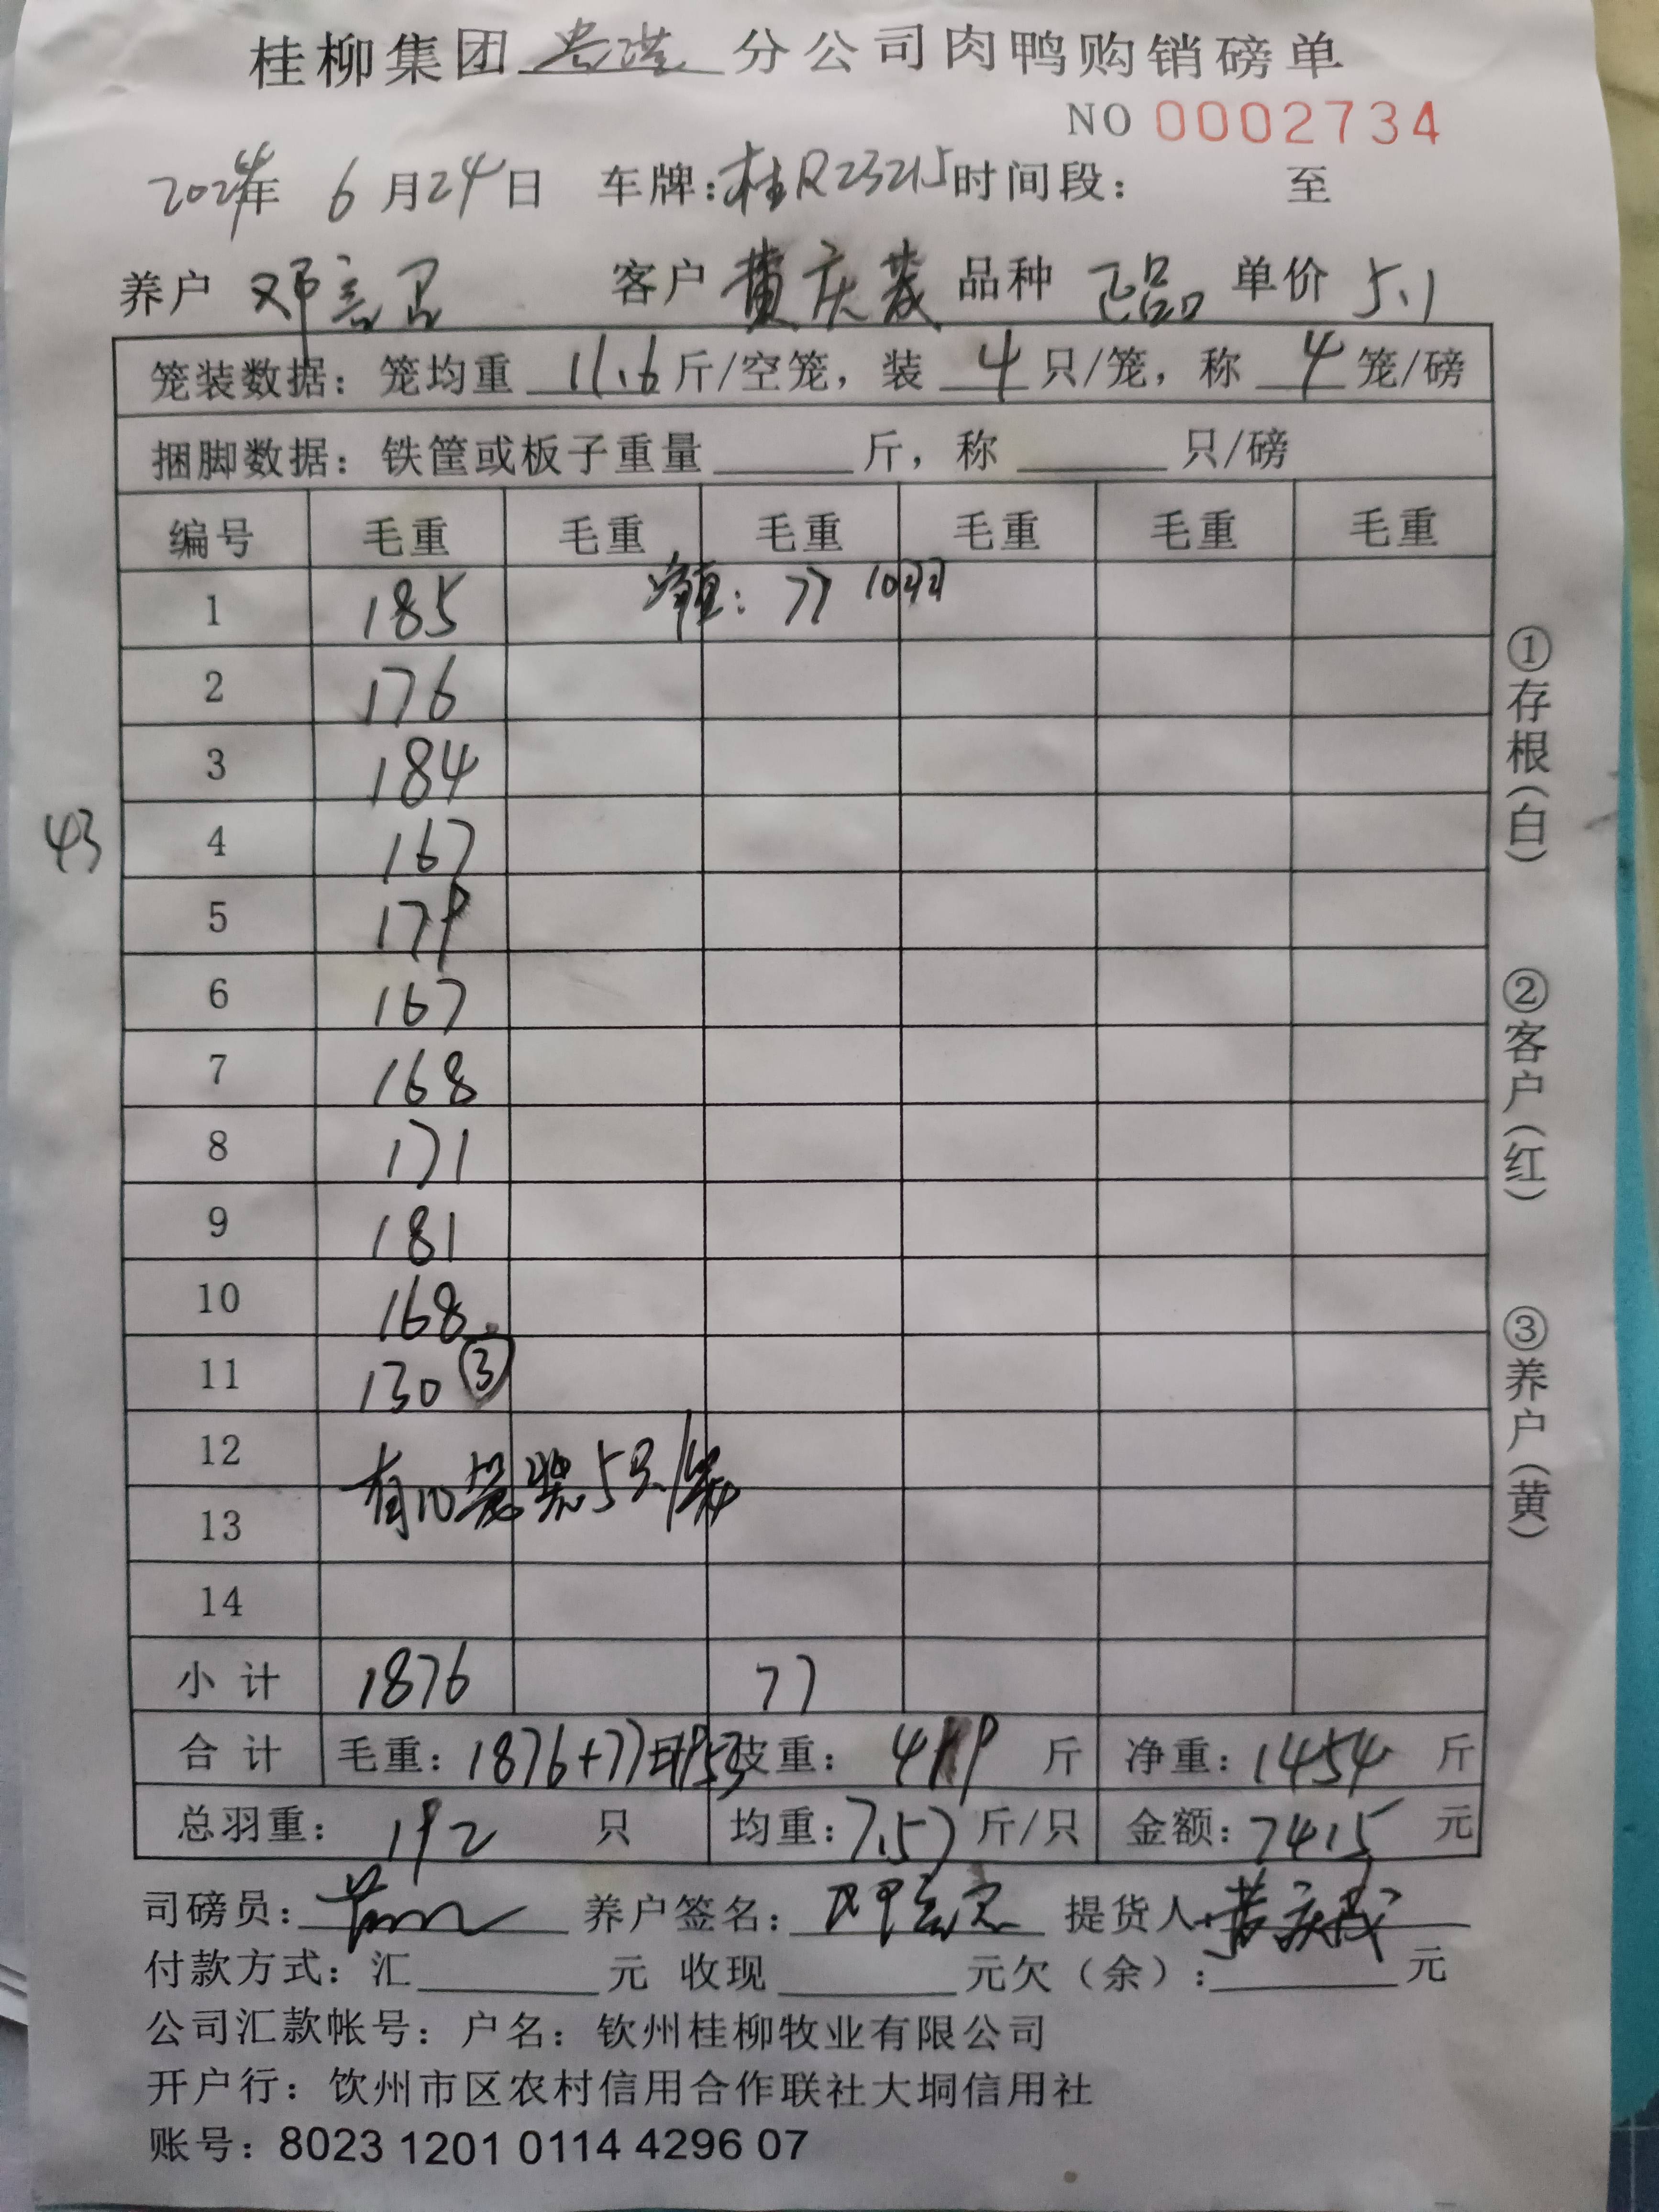 桂柳集团贵港分公司肉鸭购销磅单
NO 0002734
2024年 6月24日 车牌:桂R23215时间段: 至
养户 邓 客户 黄庆茂 品种 正品 单价 5.1
笼装数据:笼均重 11.6 斤/空笼,装 4 只/笼,称 4 笼/磅
捆脚数据:铁筐或板子重量 斤,称 只/磅
编号 毛重 毛重 毛重 毛重 毛重 毛重
1 185 净重:77 10羽
2 176
3 184
43
4 167
5 179
6 167
7 168
8 171
9 181
10 168
11 130 ③
12
有10笼装5只/笼
13
14
小计 1876 77
合计 毛重:1876+77=1953 皮重: 499 斤 净重:1454 斤
总羽重: 192 只 均重:7.57 斤/只 金额:7415 元
司磅员: 养户签名: 邓 提货人: 黄庆茂
付款方式:汇 元 收现 元欠(余): 元
公司汇款帐号:户名:钦州桂柳牧业有限公司
开户行:钦州市区农村信用合作联社大垌信用社
账号:8023 1201 0114 4296 07
①存根(白)
②客户(红)
③养户(黄)